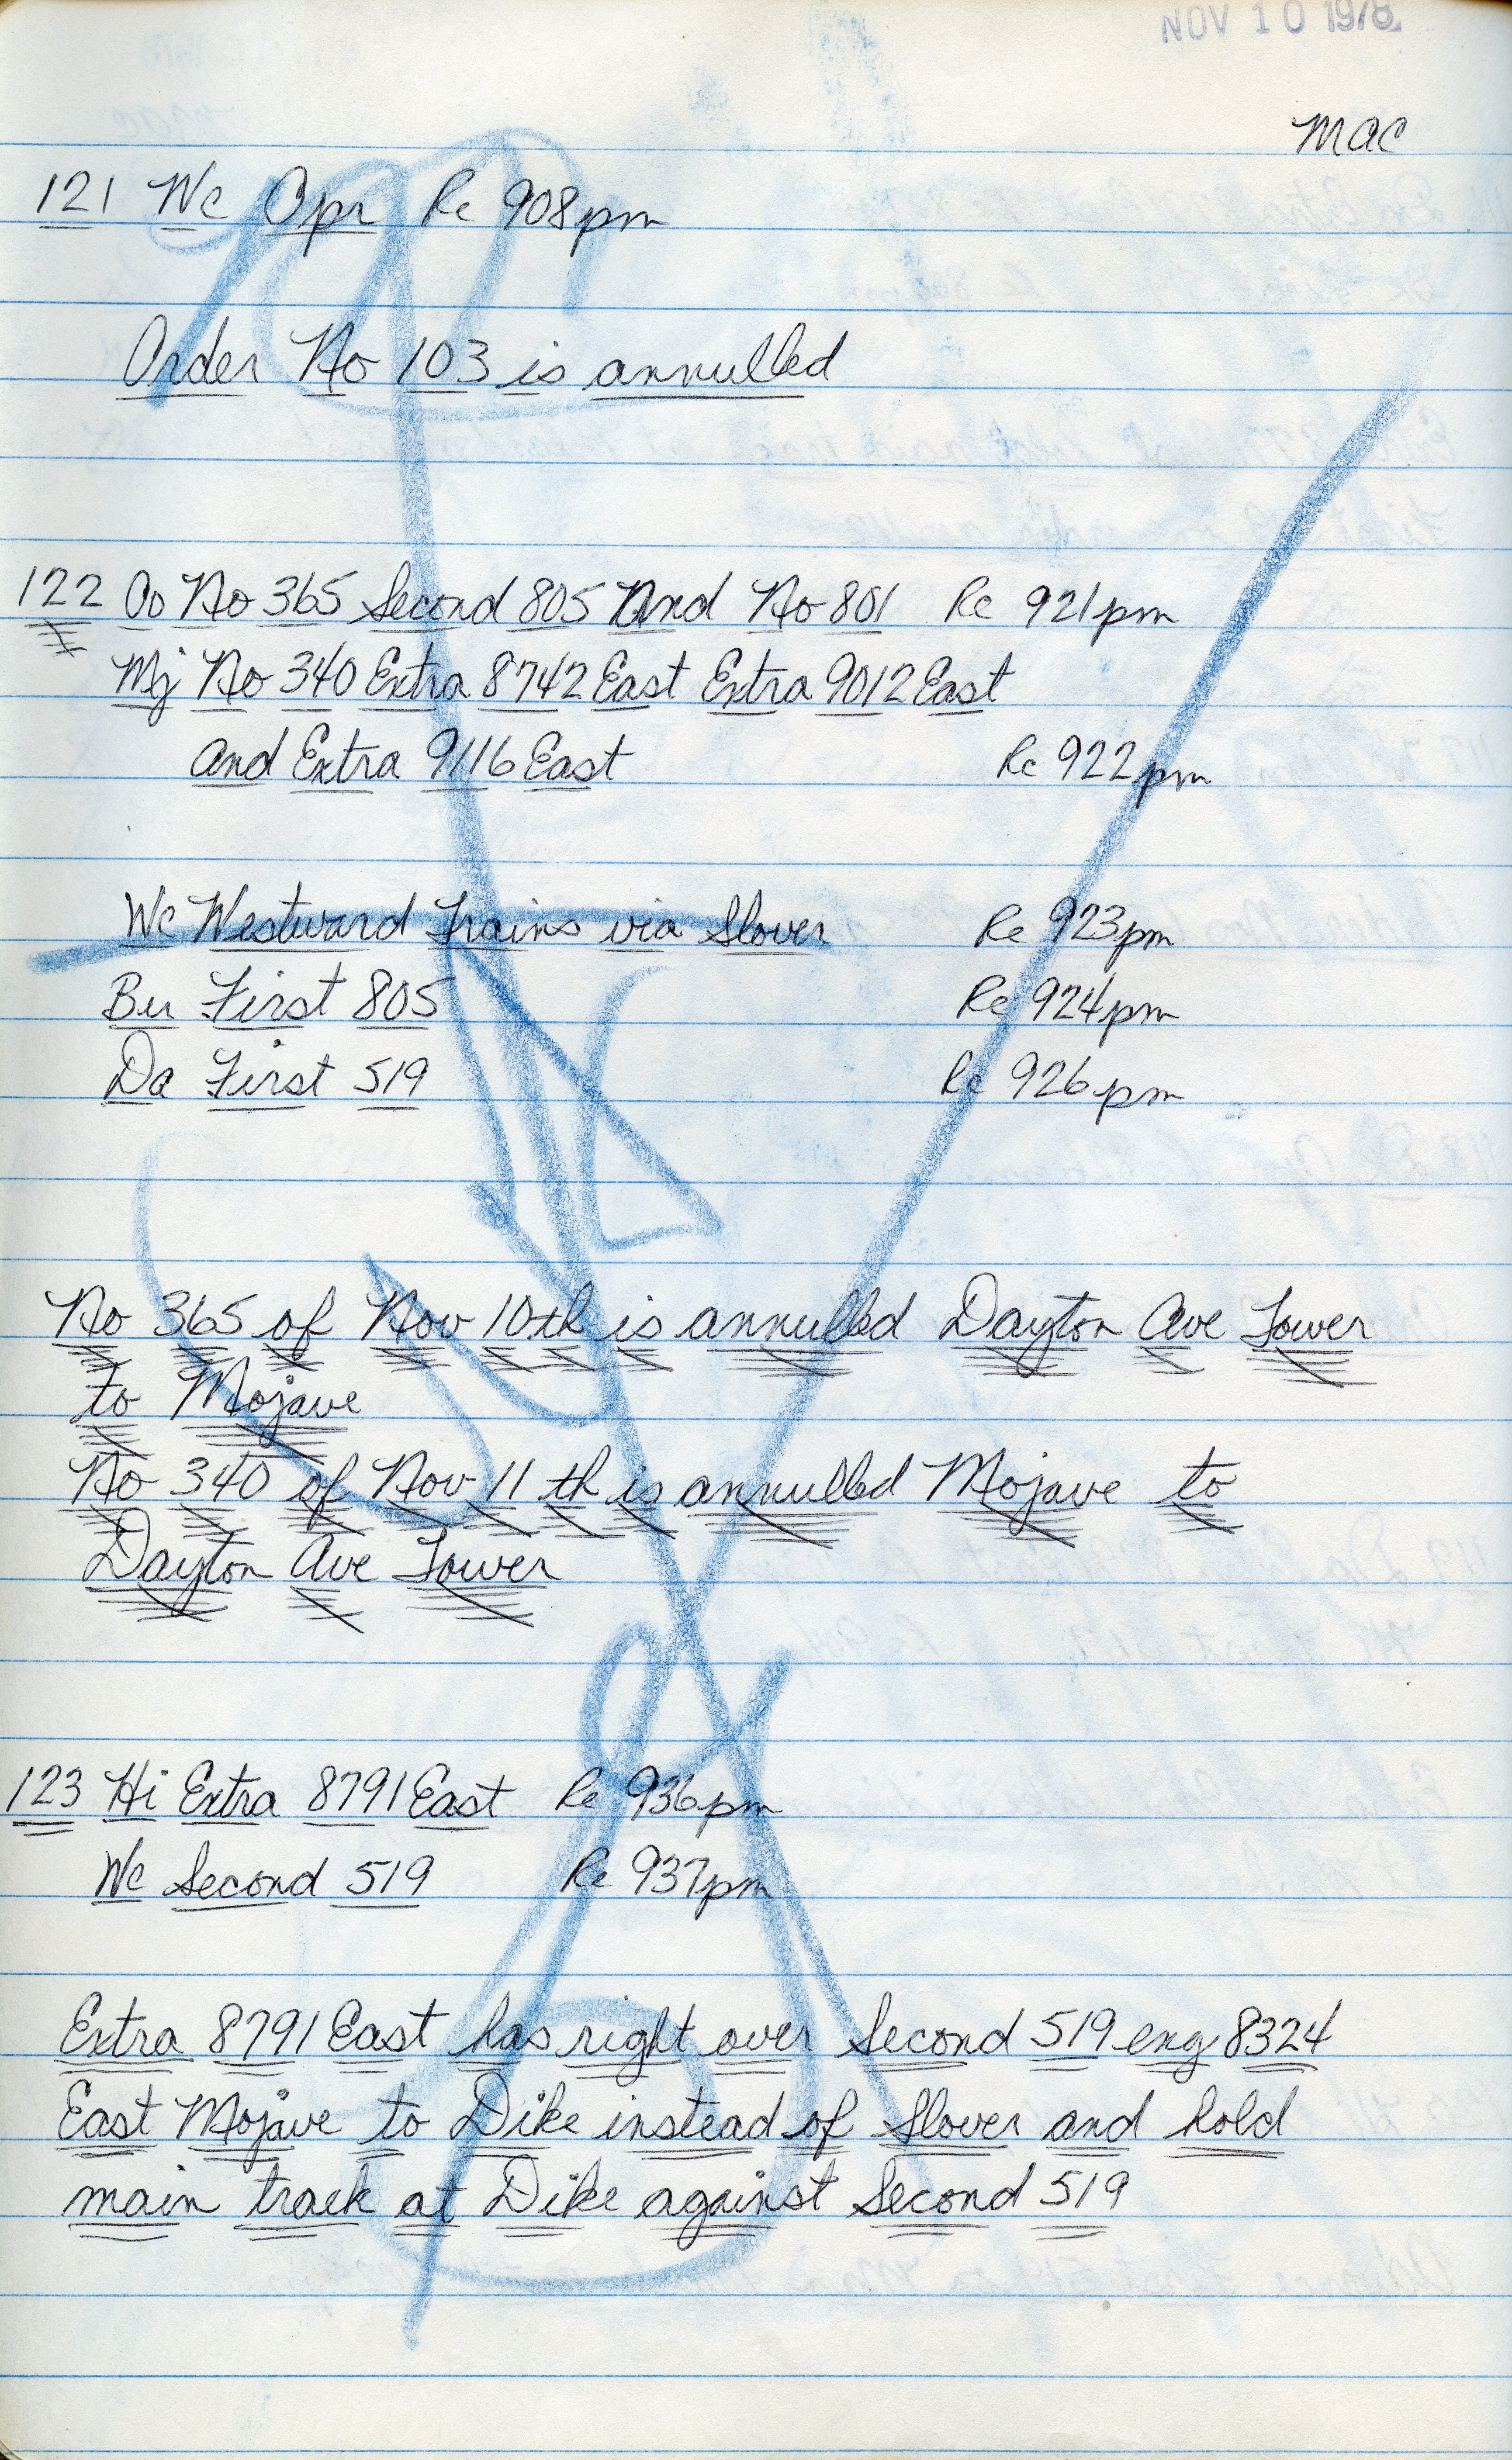 NOV 10 1978
mac
121 Wc Opr Rc 908pm
Order No 103 is annulled
122 Oo No 365 Second 805 And No 801 Rc 921pm
Mj No 340 Extra 8742 East Extra 9012 East
and Extra 9116 East Rc 922pm
Wc Westward Trains via Slover Rc 923pm
Bu First 805 Rc 924pm
Da First 519 Rc 926pm
No 365 of Nov 10th is annulled Dayton Ave Tower
to Mojave
No 340 of Nov 11th is annulled Mojave to
Dayton Ave Tower
123 Hi Extra 8791 East Rc 936pm
Wc Second 519 Rc 937pm
Extra 8791 East has right over Second 519 eng 8324
East Mojave to Dike instead of Slover and hold
main track at Dike against Second 519